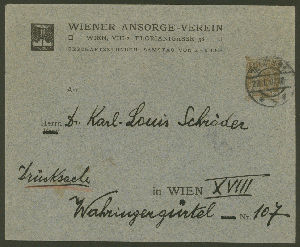 WIENER ANSORGE-VEREIN
WIEN, VIII/2 FLORIANIGASSE
An
Herrn Dr. Karl-Louis Schröder
Drucksache
in WIEN XVIII
Währingergürtel Nr. 107